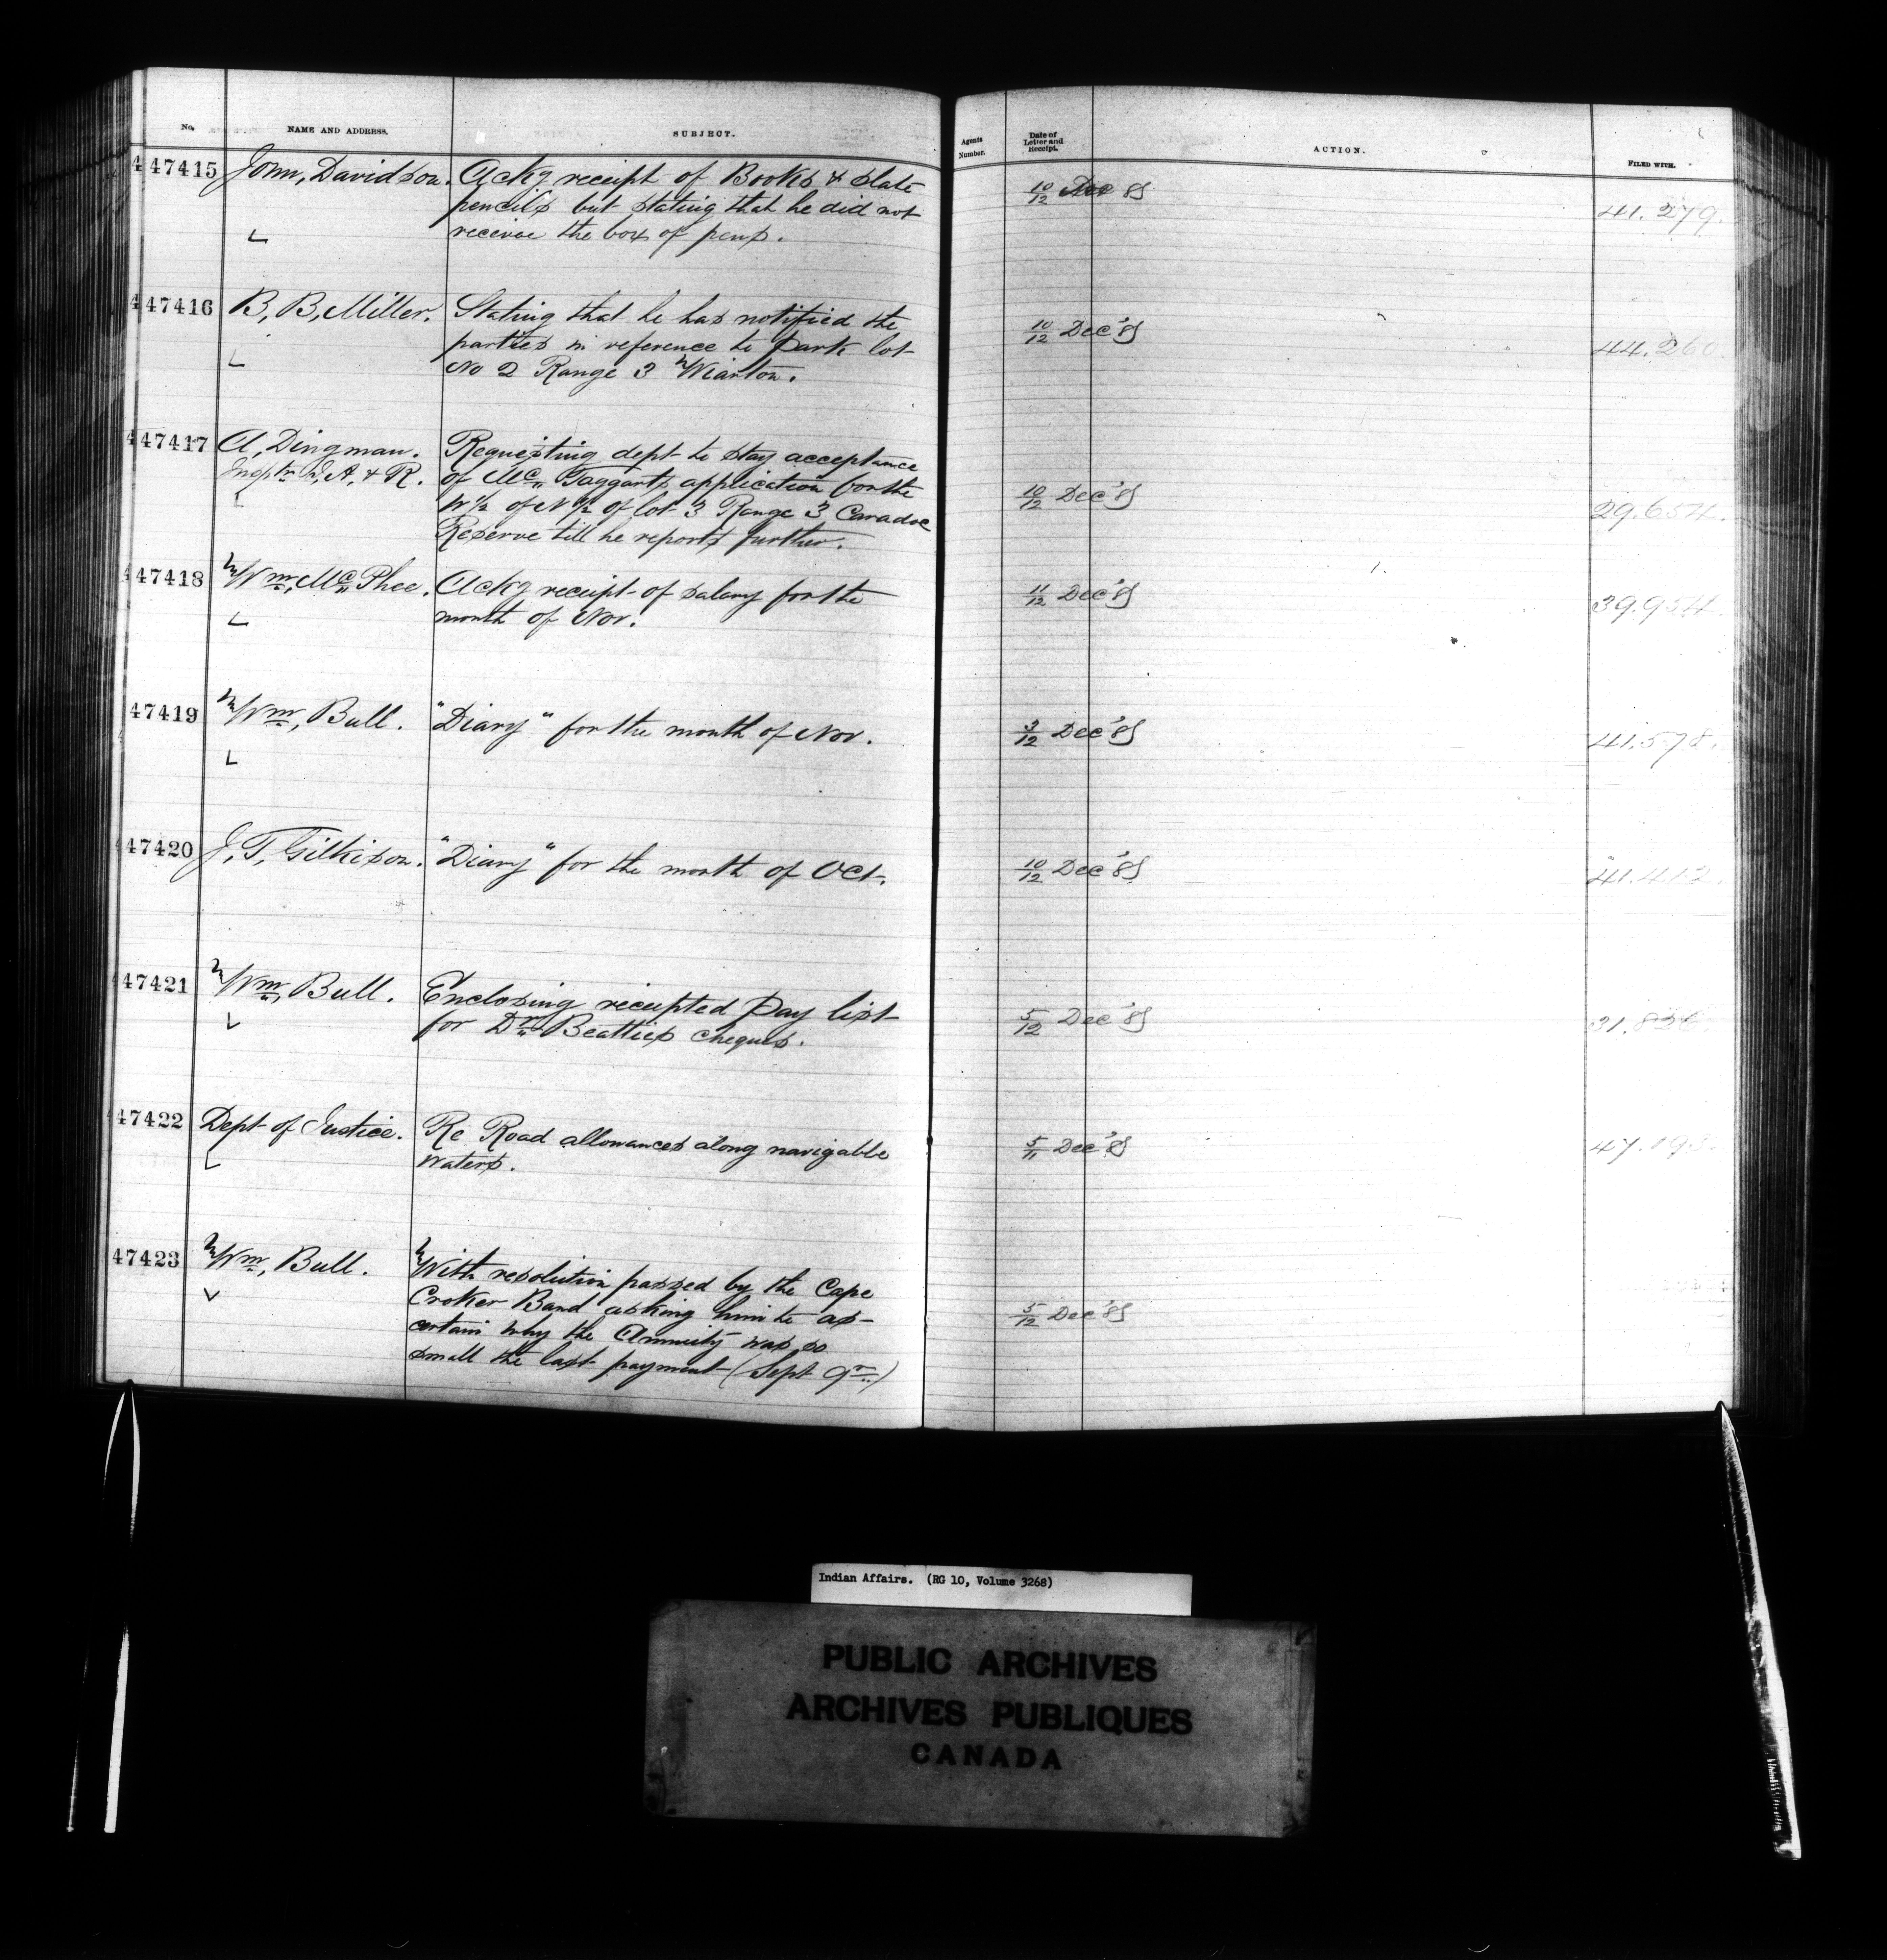 No. NAME AND ADDRESS. SUBJECT. Agents Number. Date of Letter and Receipt. ACTION. FILED WITH.
447415 John, Davidson. Ackg receipt of Books & slate 10/12 Dec 85 41.279.
pencils but stating that he did not
receive the box of pens.
447416 B, B, Miller. Stating that he has notified the 10/12 Dec '85 44.260.
parties in reference to Park lot
No 2 Range 3 Wiarton.
447417 A, Dingman. Requesting dept to stay acceptance
Insptr I, A, & R. of Mc Taggarts application for the 10/12 Dec '85 29.654.
W 1/2 of N 1/2 of lot 3 Range 3 Caradoc
Reserve till he reports further.
447418 Wm, Mc Phee. Ackg receipt of salary for the 11/12 Dec '85 39.954.
month of Nov.
47419 Wm, Bull. "Diary" for the month of Nov. 3/12 Dec '85 41.578.
47420 J, T, Gilkison. "Diary" for the month of Oct. 10/12 Dec '85 41.412.
447421 Wm, Bull. Enclosing receipted Pay list 5/12 Dec '85
for Dr Beatties cheques.
47422 Dept of Justice. Re Road allowances along navigable 5/11 Dec '85
waters.
47423 Wm, Bull. With resolution passed by the Cape
Croker Band asking him to as- 5/12 Dec '85
certain why the Annuity was so
small the last payment (Sept qr.)
Indian Affairs. (RG 10, Volume 3268)
PUBLIC ARCHIVES
ARCHIVES PUBLIQUES
CANADA